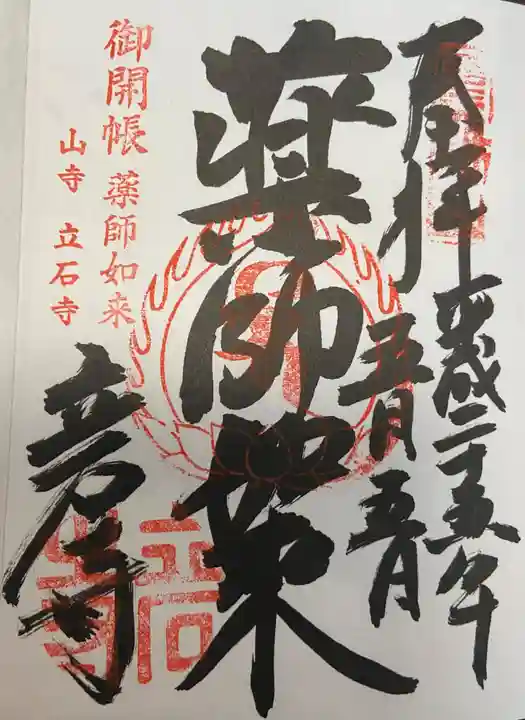 奉拝
平成二十五年
五月五日
薬師如来
御開帳 薬師如来
山寺 立石寺
立石寺